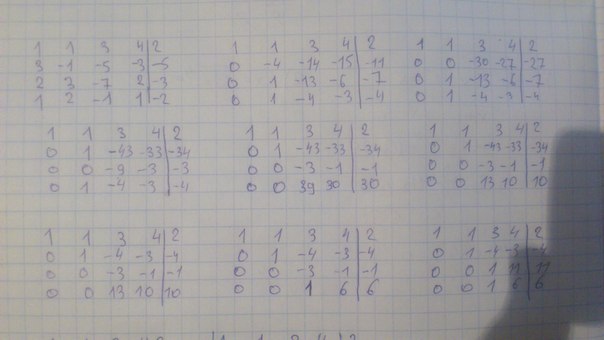 1 1 3 4 | 2
3 -1 -5 -3 | -5
2 3 -7 2 | -3
1 2 -1 1 | -2
1 1 3 4 | 2
0 -4 -14 -15 | -11
0 1 -13 -6 | -7
0 1 -4 -3 | -4
1 1 3 4 | 2
0 0 -30 -27 | -27
0 1 -13 -6 | -7
0 1 -4 -3 | -4
1 1 3 4 | 2
0 1 -43 -33 | -34
0 0 -9 -3 | -3
0 1 -4 -3 | -4
1 1 3 4 | 2
0 1 -43 -33 | -34
0 0 -3 -1 | -1
0 0 39 30 | 30
1 1 3 4 | 2
0 1 -43 -33 | -34
0 0 -3 -1 | -1
0 0 13 10 | 10
1 1 3 4 | 2
0 1 -4 -3 | -4
0 0 -3 -1 | -1
0 0 13 10 | 10
1 1 3 4 | 2
0 1 -4 -3 | -4
0 0 -3 -1 | -1
0 0 1 6 | 6
1 1 3 4 | 2
0 1 -4 -3 | -4
0 0 1 11 | 11
0 0 1 6 | 6